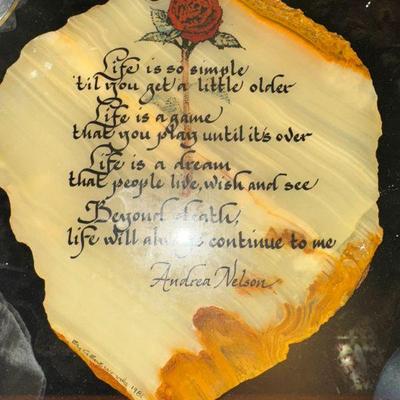 Life is so simple
'til you get a little older
Life is a game
that you play until it's over
Life is a dream
that people live, wish and see
Beyond death,
life will always continue to me
Andrea Nelson